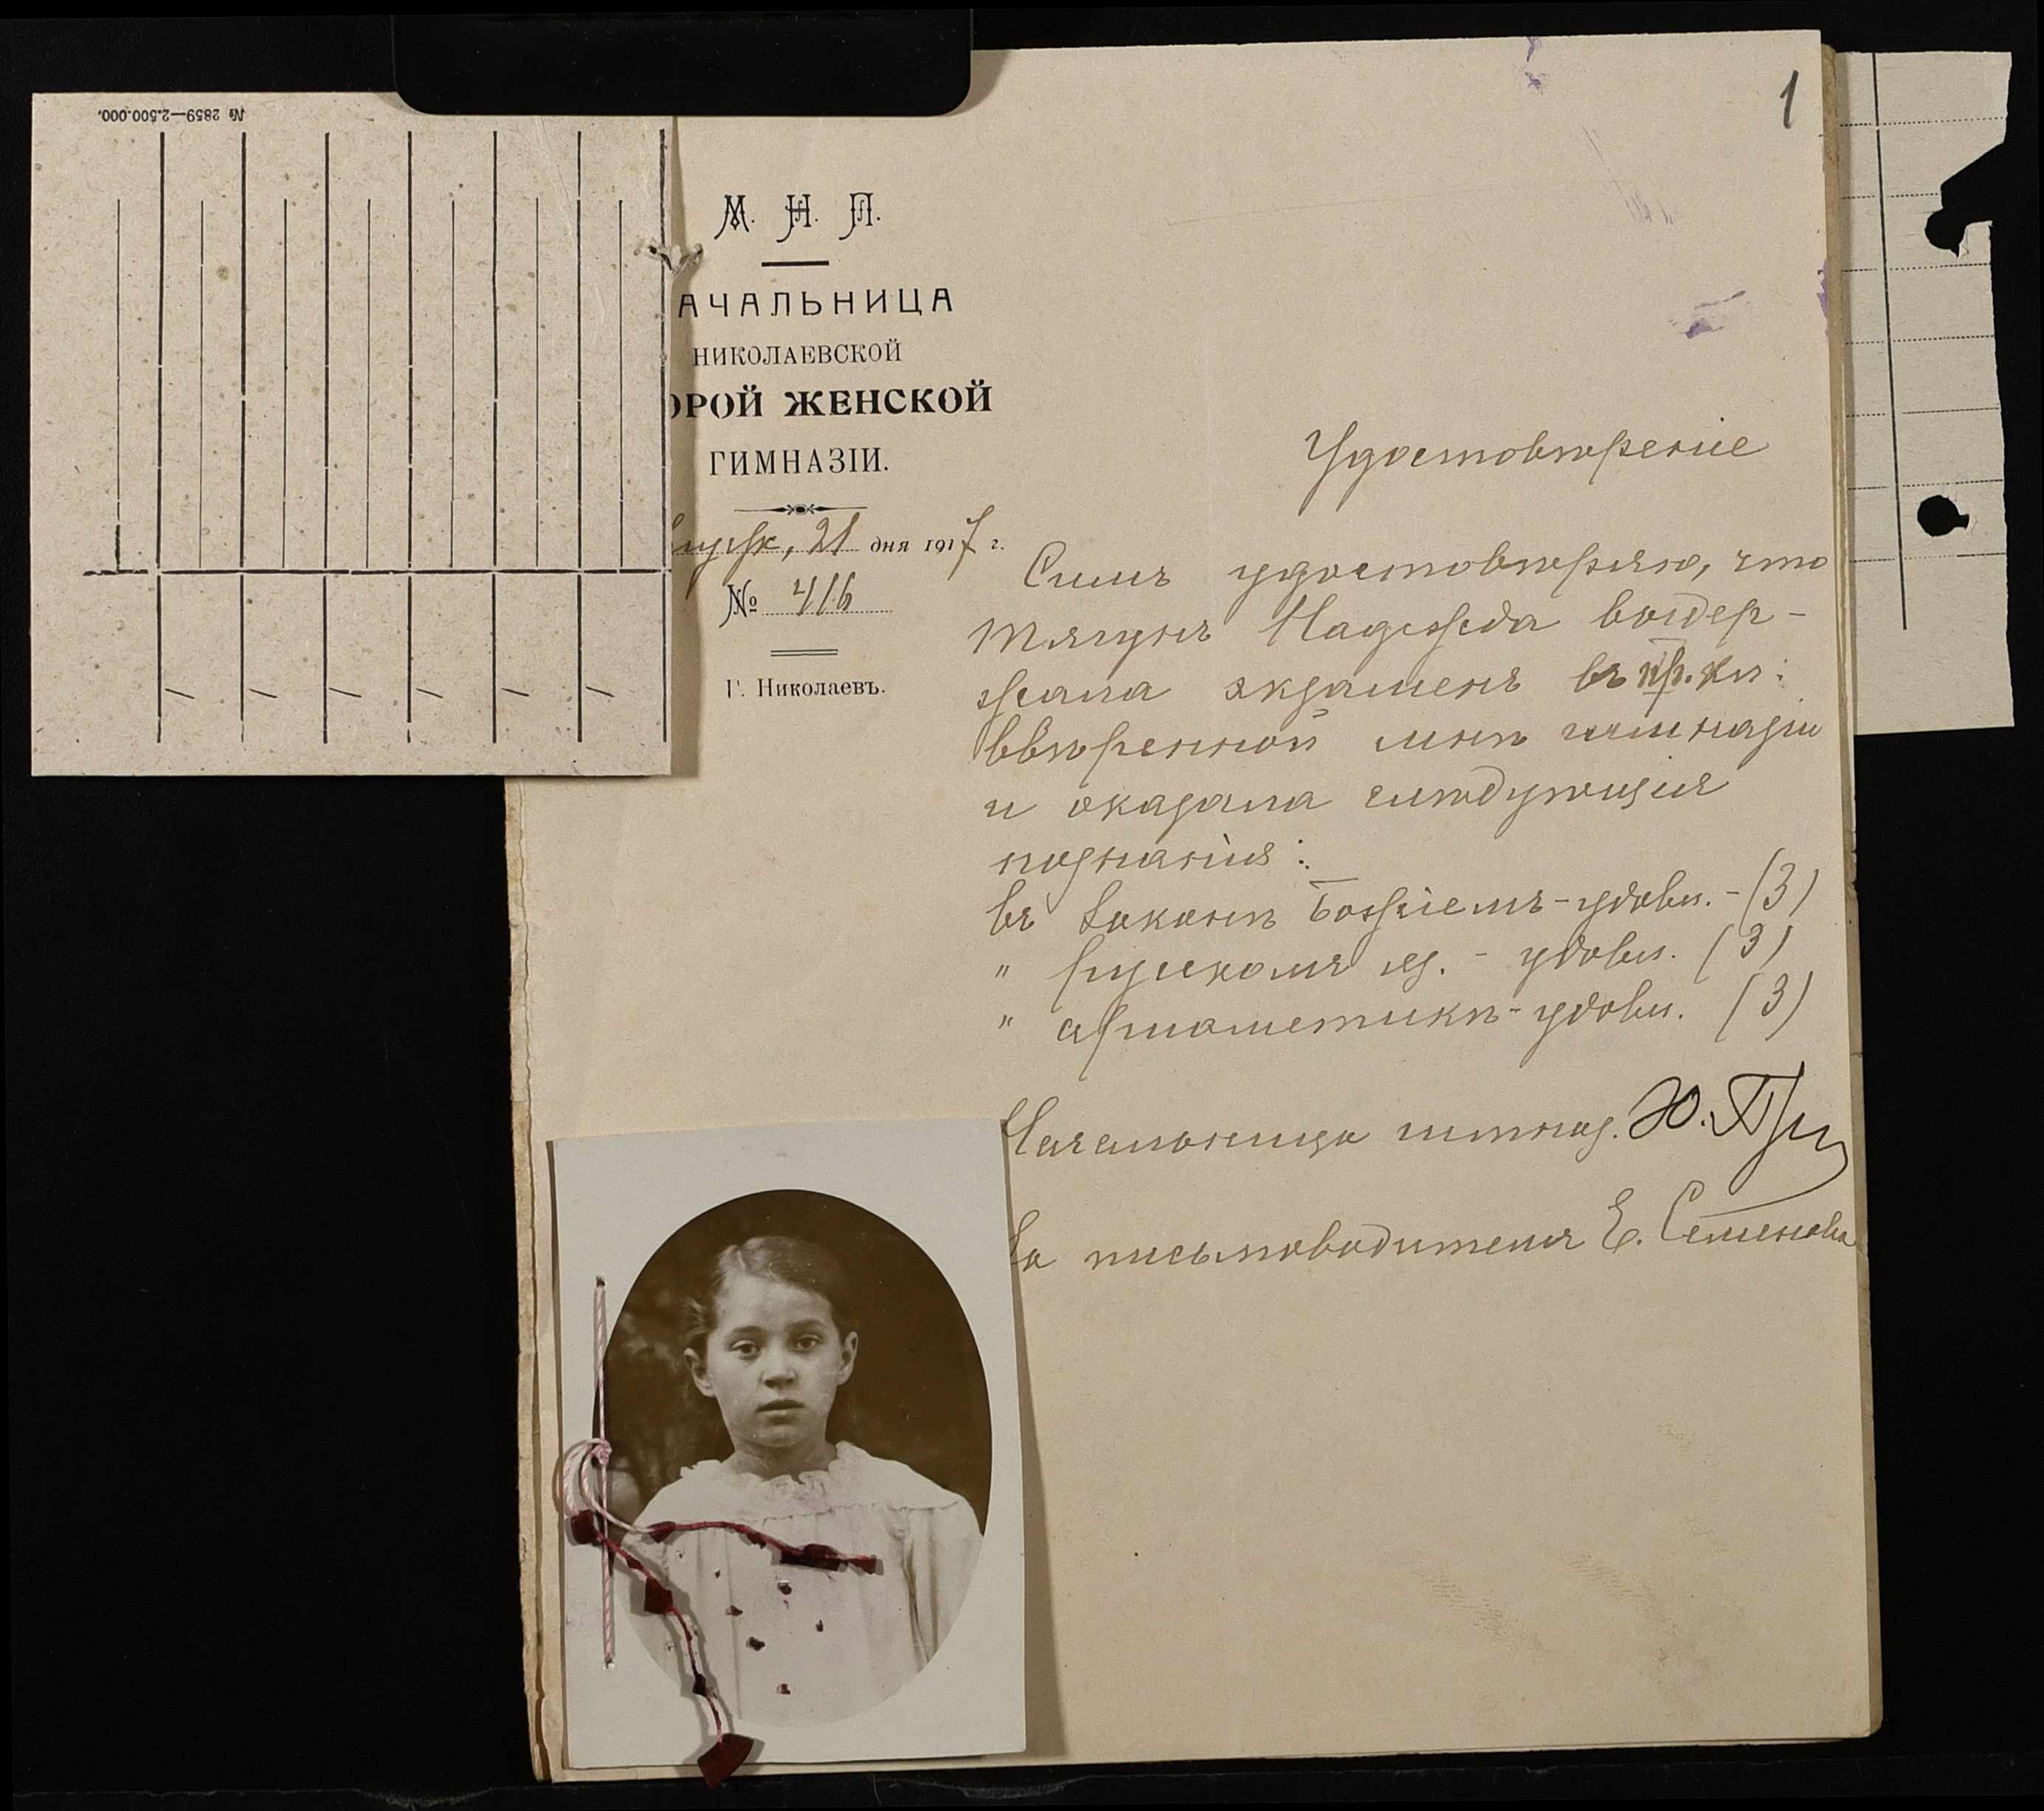 № 2859—2.500.000.
1
М. Н. П.
АЧАЛЬНИЦА
НИКОЛАЕВСКОЙ
ОРОЙ ЖЕНСКОЙ
ГИМНАЗІИ.
21 дня 1917 г.
№ 416
Г. Николаевъ.
Удостовѣреніе
Симъ удостовѣряю, что
Тягунъ Надежда выдер-
жала экзаменъ въ пр. кл:
ввѣренной мнѣ гимназіи
и оказала слѣдующія
познанія:
въ Законѣ Божіемъ - удовл. - (3)
" русскомъ яз. - удовл. (3)
" ариѳметикѣ - удовл. (3)
Начальница гимназ. Ю.
За письмоводителя Е. Семенова